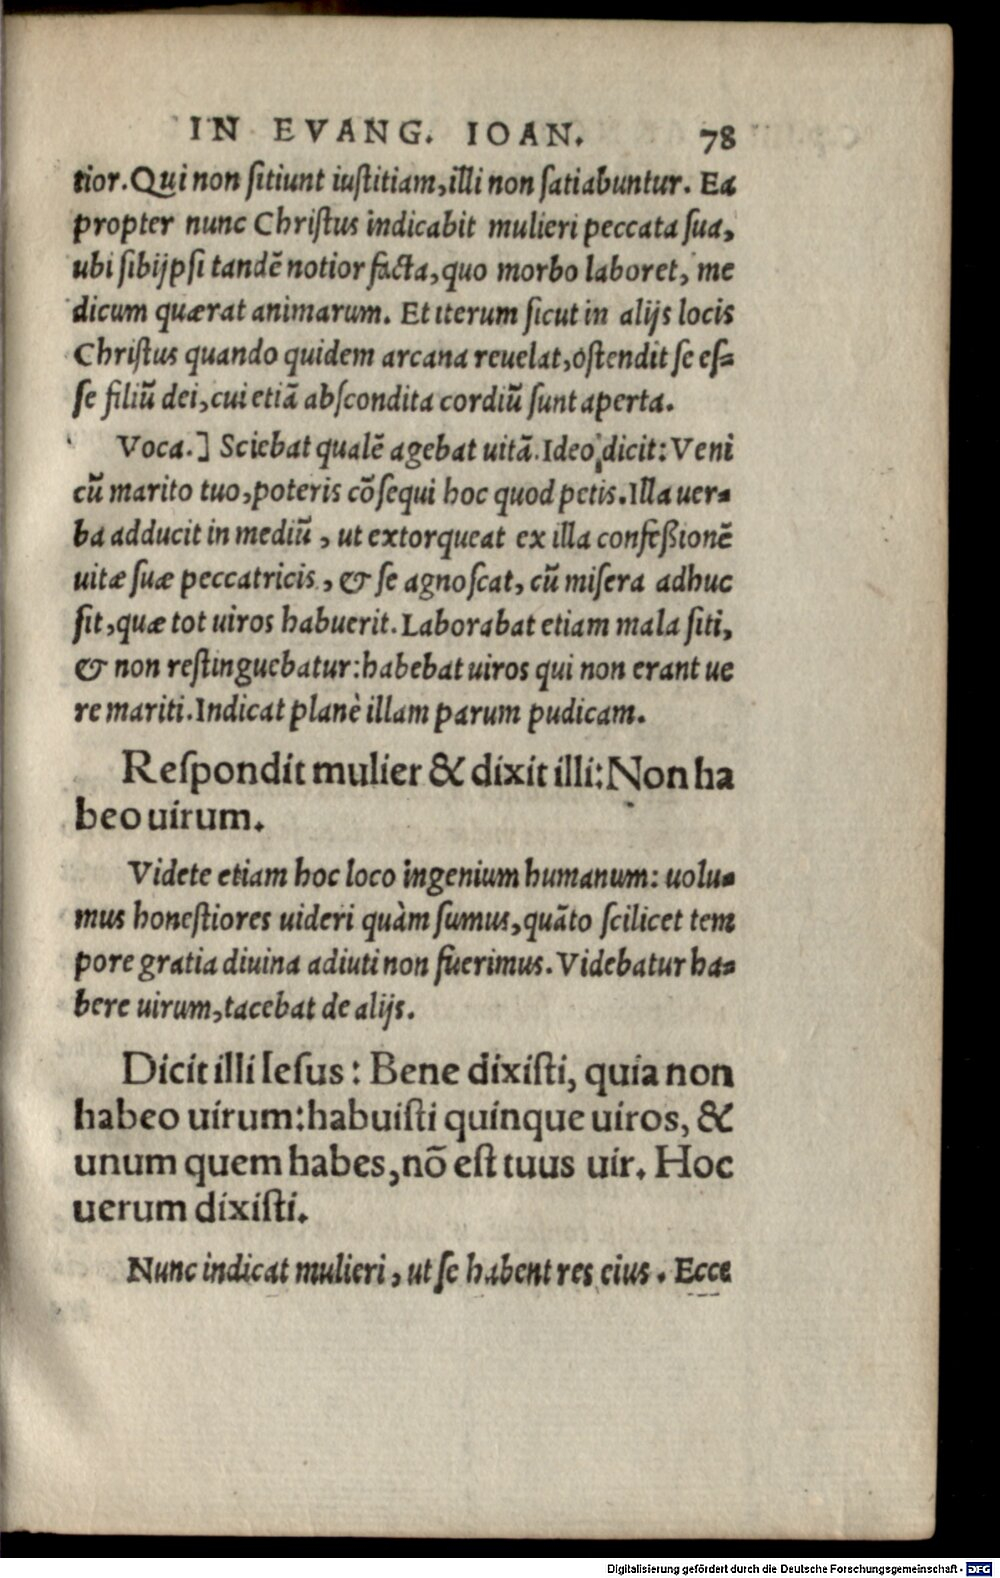 IN EVANG. IOAN. 78
tior. Qui non ſitiunt iuſtitiam, illi non ſatiabuntur. Ea
propter nunc Chriſtus indicabit mulieri peccata ſua,
ubi ſibijpſi tandẽ notior facta, quo morbo laboret, me
dicum quærat animarum. Et iterum ſicut in alijs locis
Chriſtus quando quidem arcana reuelat, oſtendit ſe eſ⸗
ſe filiũ dei, cui etiã abſcondita cordiũ ſunt aperta.
Voca.] Sciebat qualẽ agebat uitã. Ideo dicit: Veni
cũ marito tuo, poteris cõſequi hoc quod petis. Illa uer⸗
ba adducit in mediũ, ut extorqueat ex illa confeßionẽ
uitæ ſuæ peccatricis, & ſe agnoſcat, cũ miſera adhuc
ſit, quæ tot uiros habuerit. Laborabat etiam mala ſiti,
& non reſtinguebatur: habebat uiros qui non erant ue
re mariti. Indicat planè illam parum pudicam.
Reſpondit mulier & dixit illi: Non ha
beo uirum.
Videte etiam hoc loco ingenium humanum: uolu⸗
mus honeſtiores uideri quàm ſumus, quãto ſcilicet tem
pore gratia diuina adiuti non fuerimus. Videbatur ha⸗
bere uirum, tacebat de alijs.
Dicit illi Ieſus: Bene dixiſti, quia non
habeo uirum: habuiſti quinque uiros, &
unum quem habes, nõ eſt tuus uir. Hoc
uerum dixiſti.
Nunc indicat mulieri, ut ſe habent res eius. Ecce
Digitalisierung gefördert durch die Deutsche Forschungsgemeinschaft - DFG